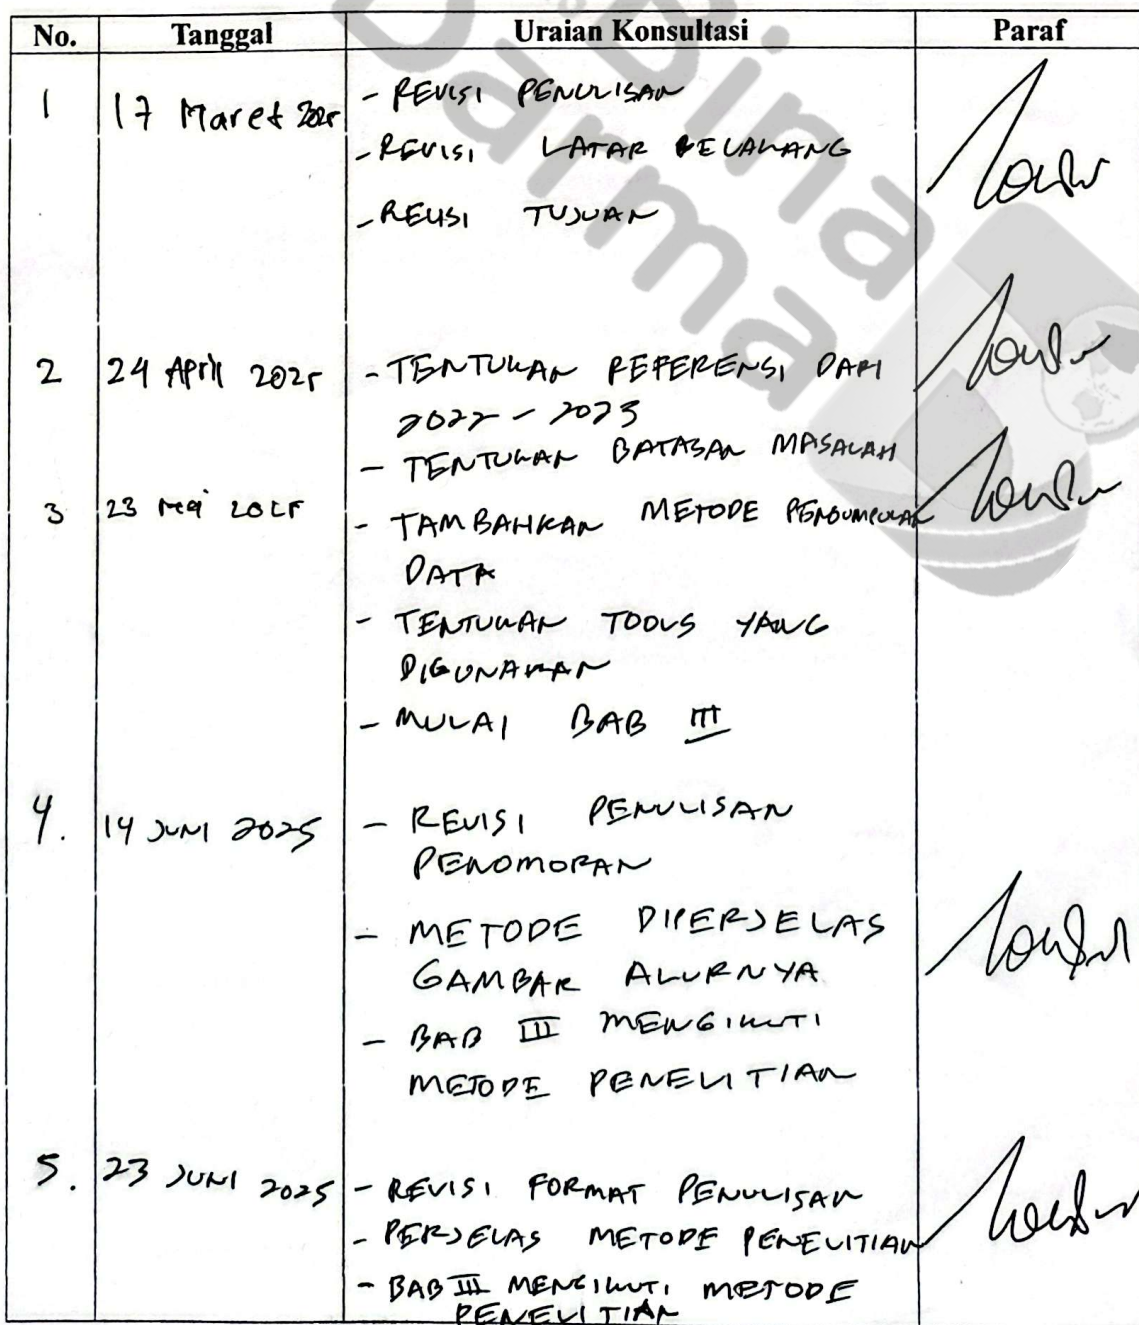 Bina
Darma
No. Tanggal Uraian Konsultasi Paraf
1 17 Maret 2025 - REVISI PENULISAN
- REVISI LATAR BELAKANG
- REVISI TUJUAN
2 24 April 2025 - TENTUKAN REFERENSI DARI
2022 - 2023
- TENTUKAN BATASAN MASALAH
3 23 Mei 2025 - TAMBAHKAN METODE PENGUMPULAN
DATA
- TENTUKAN TOOLS YANG
DIGUNAKAN
- MULAI BAB III
4. 14 JUNI 2025 - REVISI PENULISAN
PENOMORAN
- METODE DIPERJELAS
GAMBAR ALURNYA
- BAB III MENGIKUTI
METODE PENELITIAN
5. 23 JUNI 2025 - REVISI FORMAT PENULISAN
- PERJELAS METODE PENELITIAN
- BAB III MENGIKUTI METODE
PENELITIAN